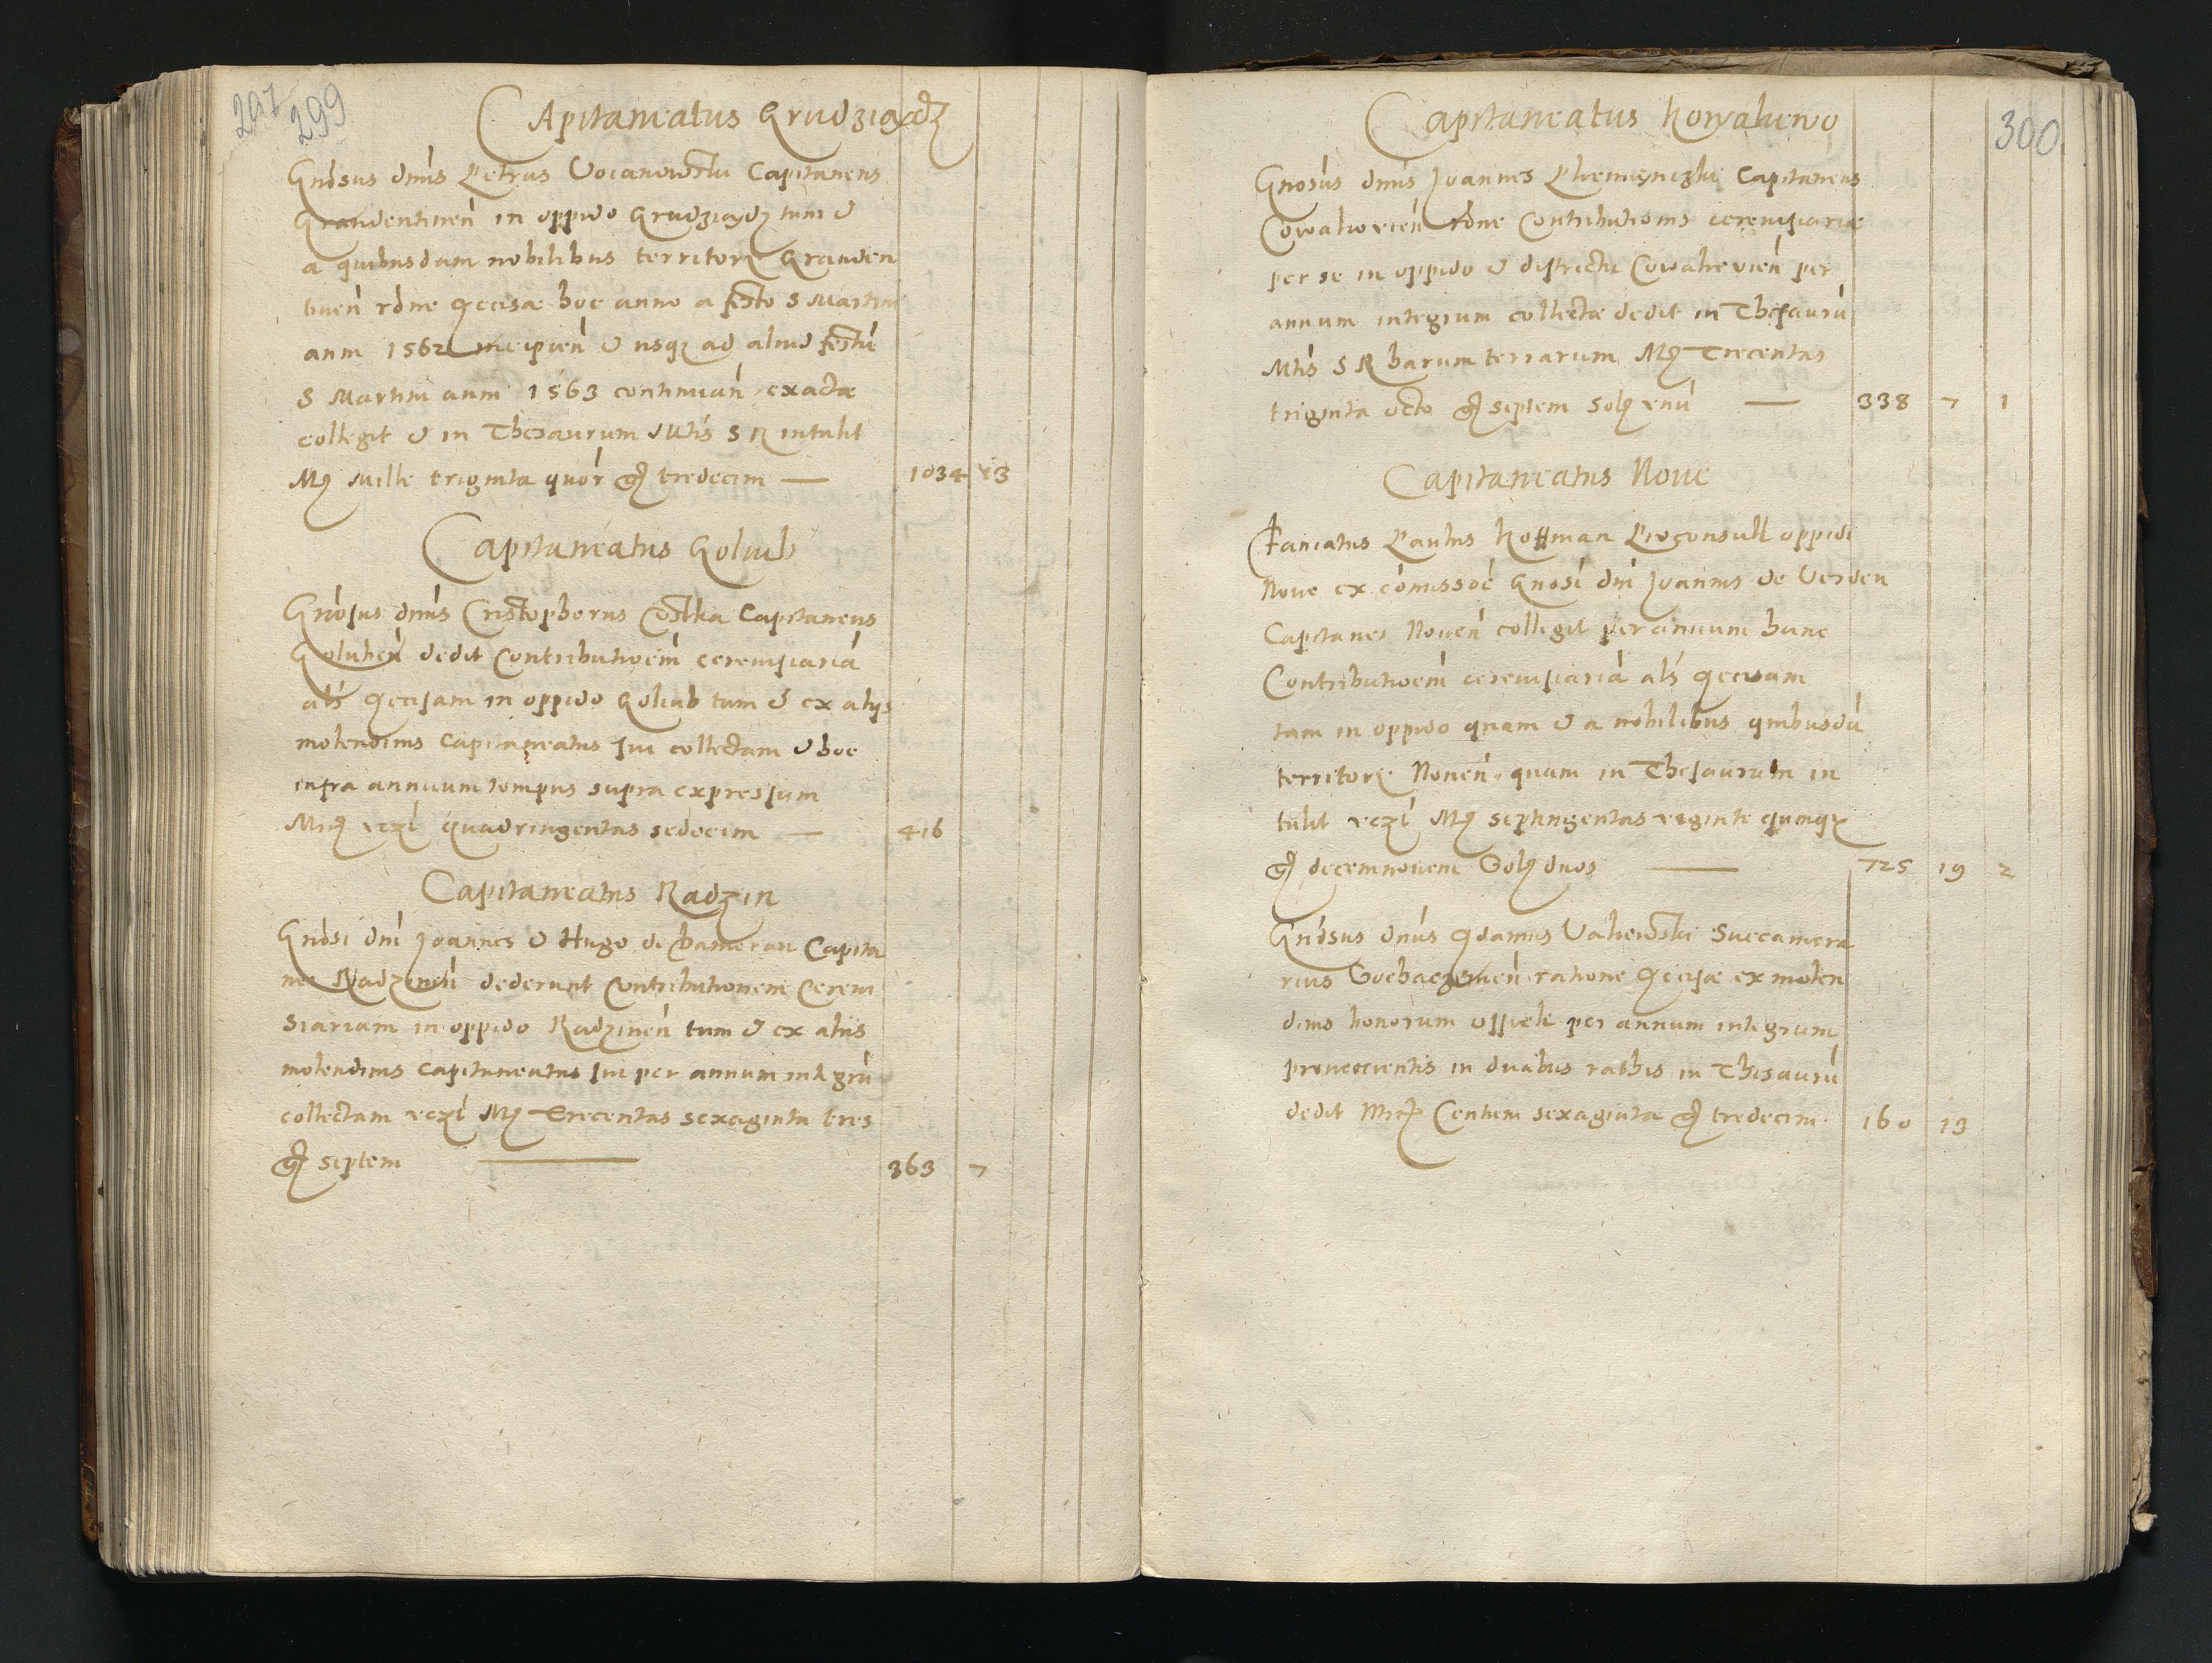 297 299
Capitaneatus Grudziąydz
Gnosus dnus Petrus Voianowski Capitaneus
Graudentinen in oppido Grudziąydz tum &
a quibusdam nobilibus territorij Grauden
tinen rone Accisæ hoc anno a festo S Martini
anni 1562 incipien & usq; ad aliud festu
S Martini anni 1563 continuan exactæ
collegit & in Thesaurum Mtis S R intulit
Mrc Mille triginta quor gr tredecim — 1034 13
Capitaneatus Goliub
Gnosus dnus Cristophorus Costka Capitaneus
Golubien dedit Contributioem cereuisiaria
als Accisam in oppido Goliub tum & ex alijs
molendinis Capitaneatus sui collectam & hoc
infra annuum tempus supra expressum
Mrc vczl quadringentas sedecim — 416
Capitaneatus Radzin
Gnosi dni Joannes & Hugo de Damerau Capita
nei Radzinen dederunt Contributionem Cereui
siariam in oppido Radzinen tum & ex aliis
molendinis Capitaneatus sui per annum integru
collectam vczl Mrc Trecentas sexaginta tres
gr septem — 363 7
300
Capitaneatus Kowaliewo
Gnosus dnus Joannes Plemięniczki Capitaneus
Cowaliovien rone Contributionis cereuisiariæ
per se in oppido & districtu Cowalievien per
annum integrum collectæ dedit in Thesauru
Mtis S R harum terrarum Mrc Trecentas
triginta octo gr septem Sol vnu — 338 7 1
Capitaneatus Noue
Famatus Paulus Hoffman Proconsull oppidi
Noue ex comissoe Gnosi dni Joannis de Verden
Capitanei Nouen collegit per annuum hanc
Contributioem cereuisiaria als Accisam
tam in oppido quam & a nobilibus quibusdu
territorij Nouen quam in Thesaurum in
tulit vczl Mrc septingentas viginti quinq;
gr decemnouem Sol duos — 725 19 2
Gnosus dnus Adamus Valiewski Succamera
rius Sochaczewien ratione Accisæ ex molen
dinis bonorum Ossiek per annum integrum
prouenientis in duabus rathis in Thesauru
dedit Mrc Centum sexaginta gr tredecim 160 13